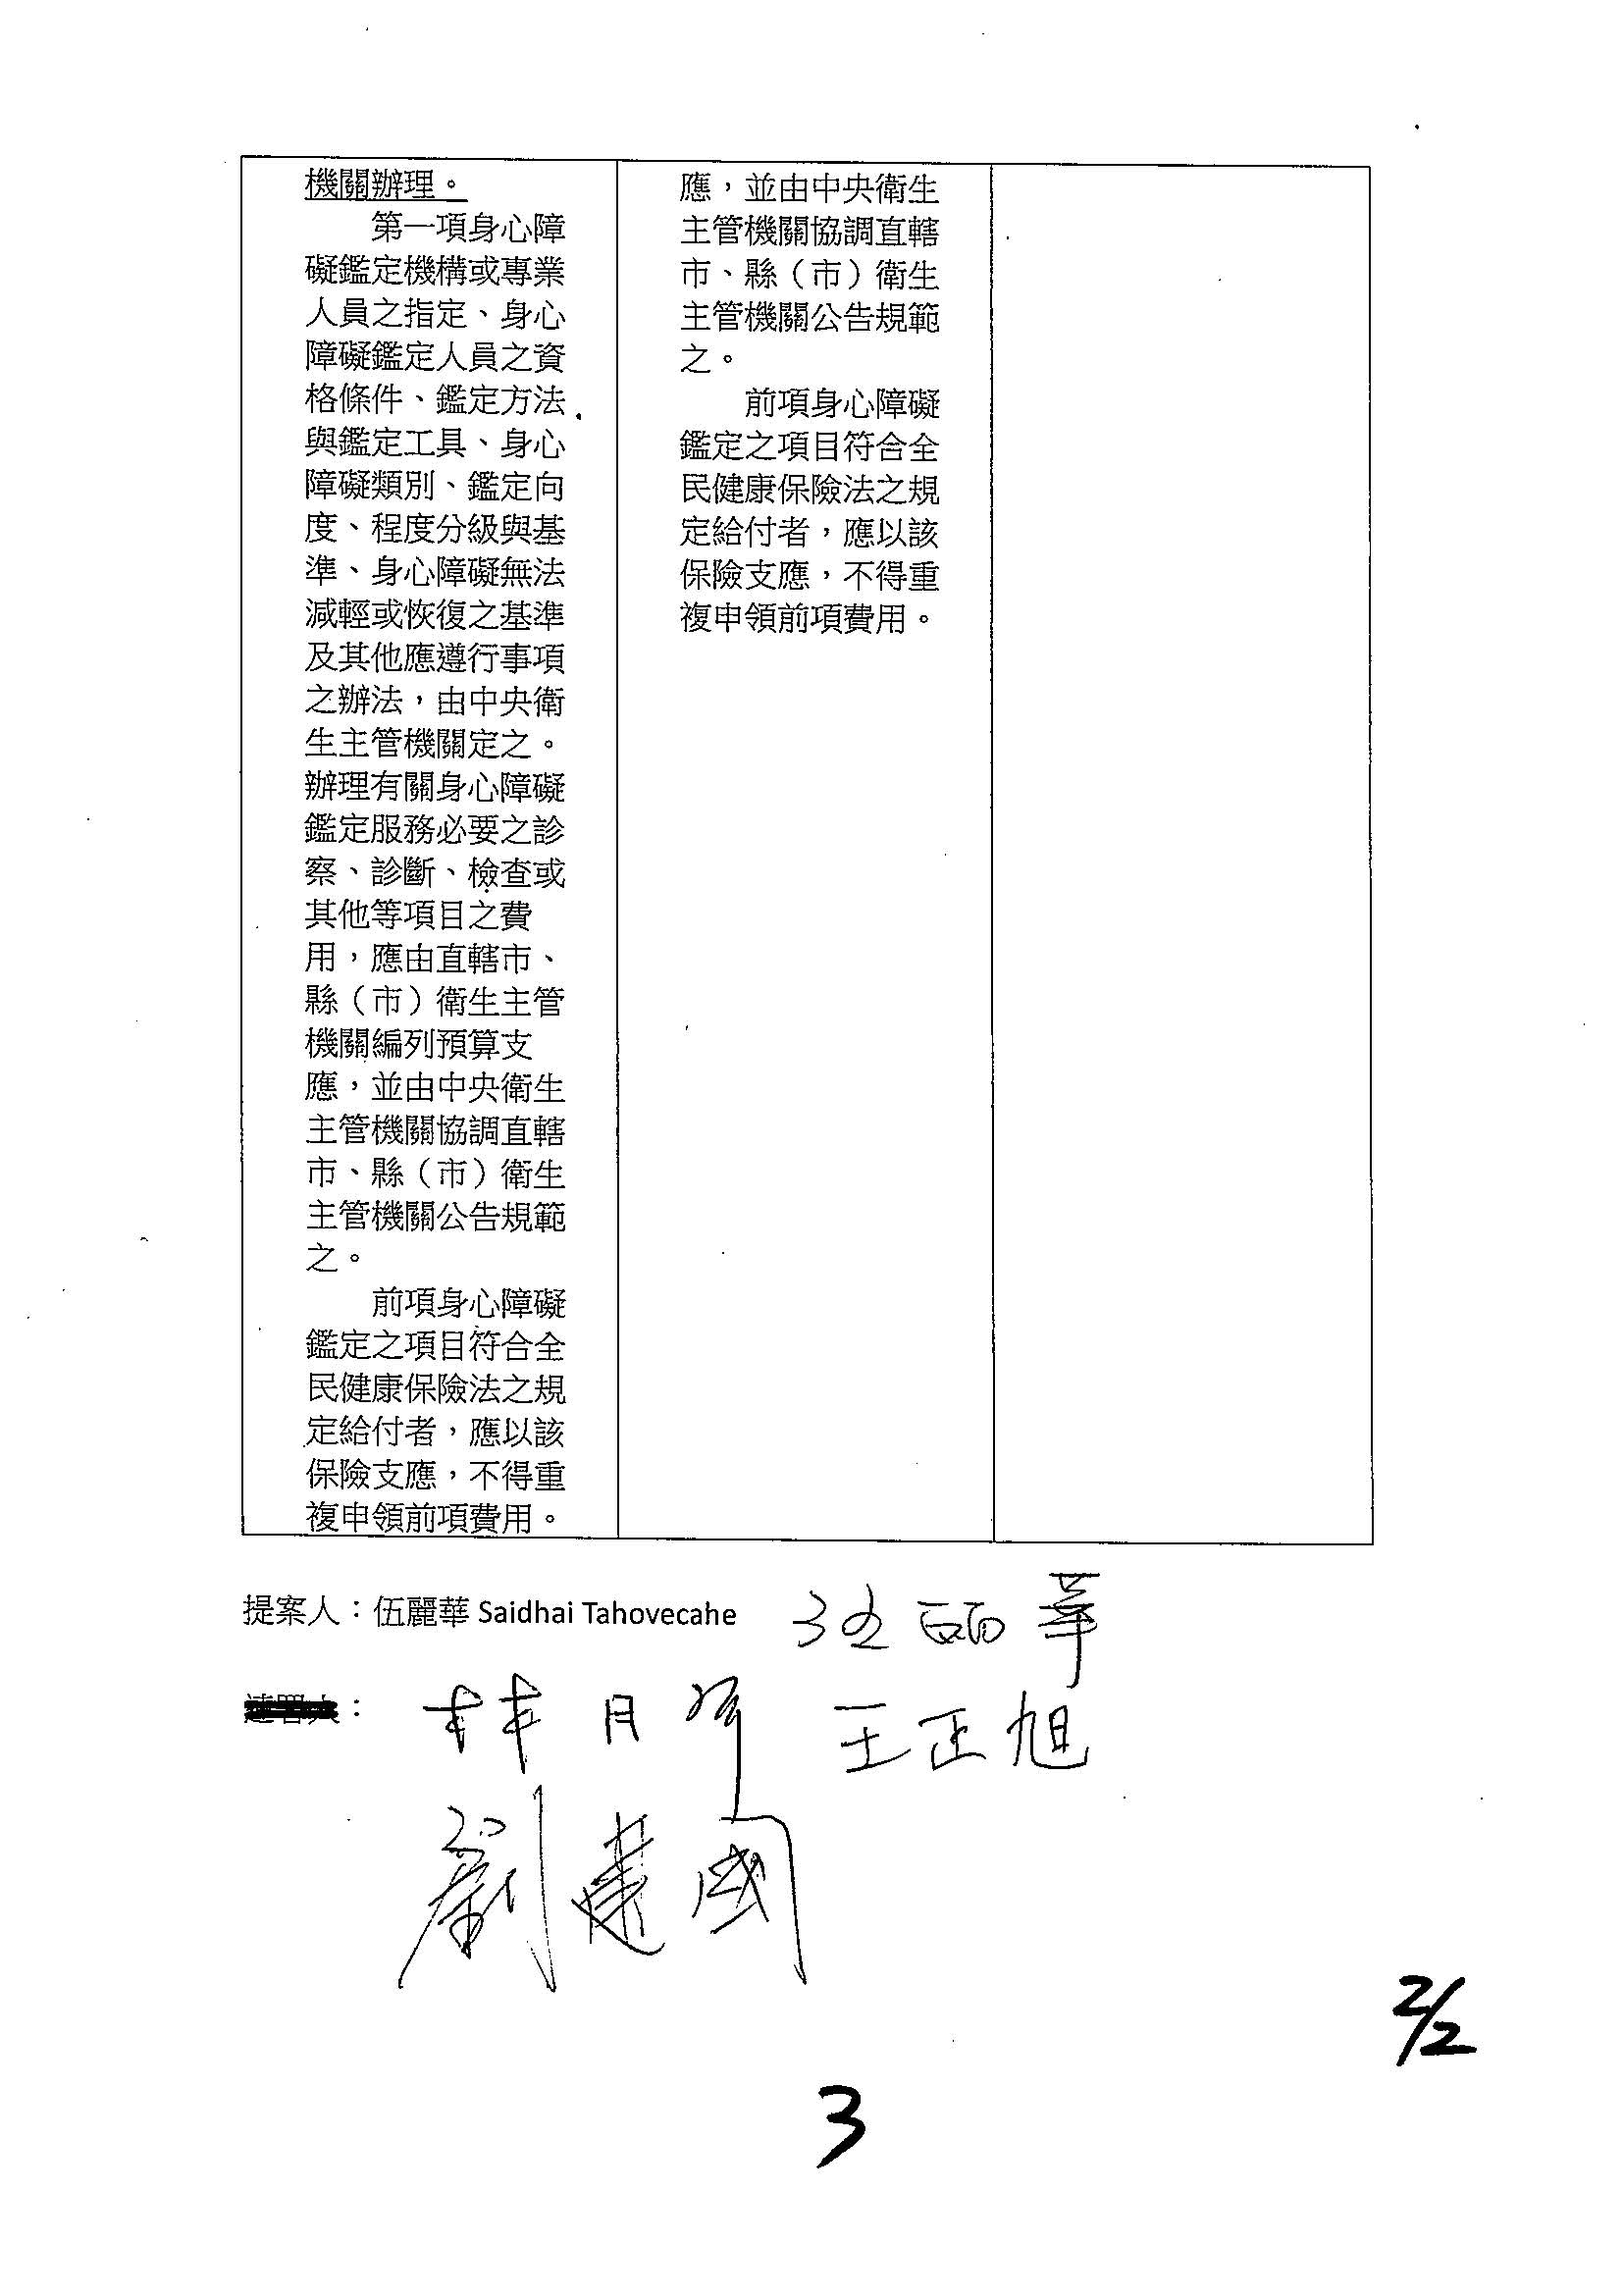 機關辦理。
第一項身心障
礙鑑定機構或專業
人員之指定、身心
障礙鑑定人員之資
格條件、鑑定方法
與鑑定工具、身心
障礙類別、鑑定向
度、程度分級與基
準、身心障礙無法
減輕或恢復之基準
及其他應遵行事項
之辦法，由中央衛
生主管機關定之。
辦理有關身心障礙
鑑定服務必要之診
察、診斷、檢查或
其他等項目之費
用，應由直轄市、
縣（市）衛生主管
機關編列預算支
應，並由中央衛生
主管機關協調直轄
市、縣（市）衛生
主管機關公告規範
之。
前項身心障礙
鑑定之項目符合全
民健康保險法之規
定給付者，應以該
保險支應，不得重
複申領前項費用。
應，並由中央衛生
主管機關協調直轄
市、縣（市）衛生
主管機關公告規範
之。
前項身心障礙
鑑定之項目符合全
民健康保險法之規
定給付者，應以該
保險支應，不得重
複申領前項費用。
提案人：伍麗華 Saidhai Tahovecahe 伍麗華
：林月琴 王正旭
劉建國
2/2
3